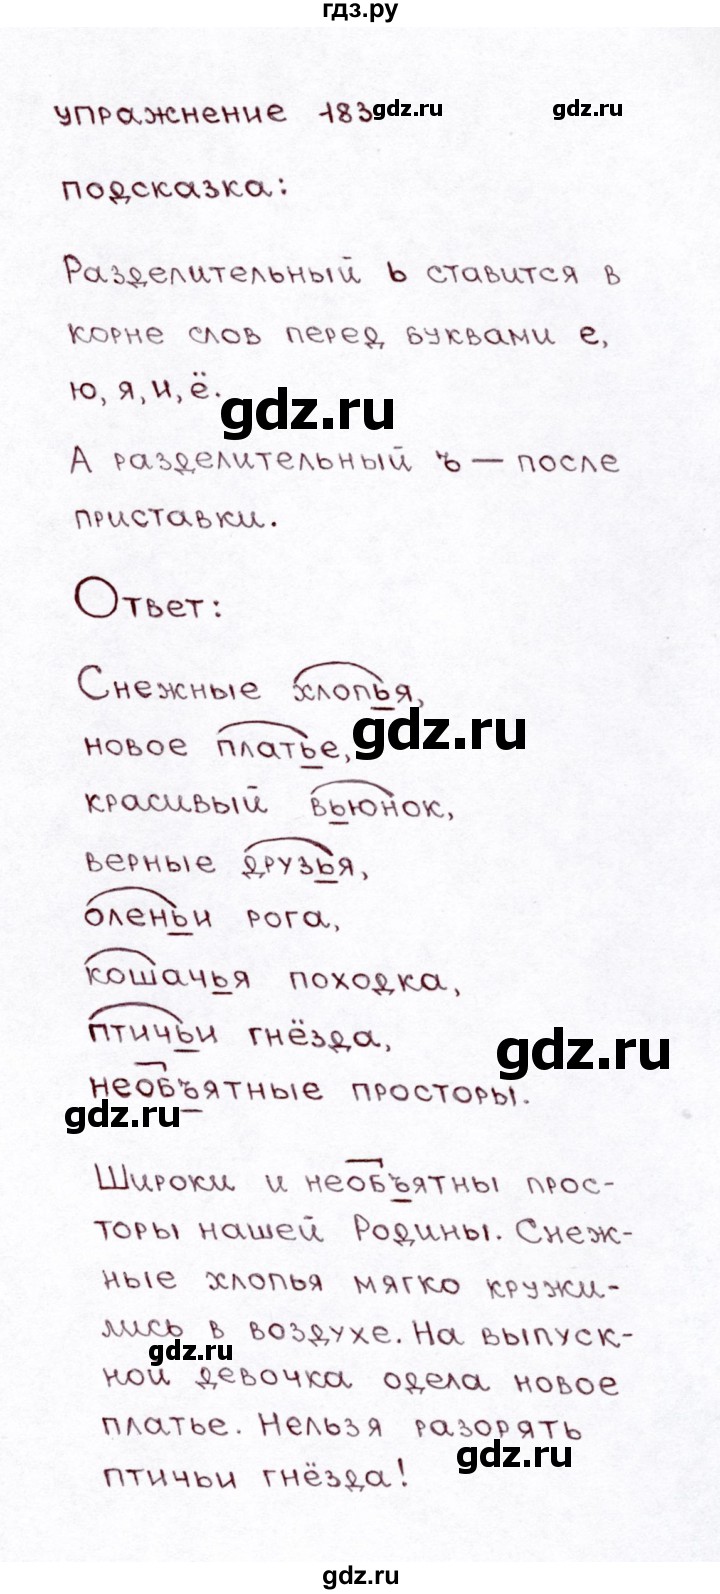 гдз.ру
упражнение 183 gdz.ru gdz.ru
подсказка:
Разделительный ь ставится в
корне слов перед буквами е,
ю, я, и, ё.
gdz.ru
А разделительный ъ — после
приставки.
Ответ:
Снежные хлопья,
gdz.ru
новое платье,
красивый вьюнок,
верные друзья,
оленьи рога,
кошачья походка,
птичьи гнёзда,
gdz.ru
необъятные просторы.
gdz.ru
Широки и необъятны прос-
торы нашей Родины. Снеж-
ные хлопья мягко кружи-
лись в воздухе. На выпуск-
gdz.ru
ной девочка одела новое
платье. Нельзя разорять
gdz.ru
птичьи гнёзда!
gdz.ru